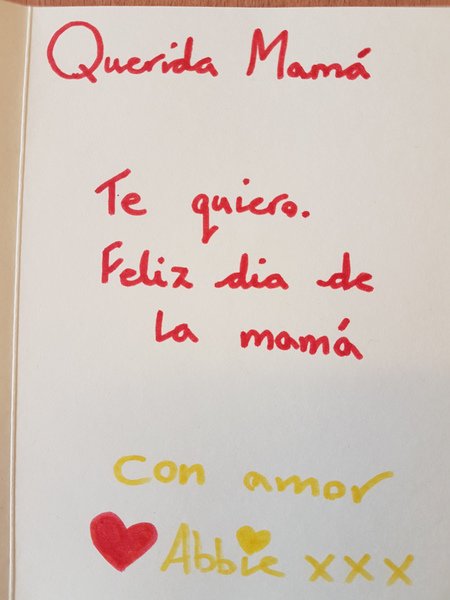 Querida Mamá
Te quiero.
Feliz dia de
la mamá
con amor
Abbie xxx